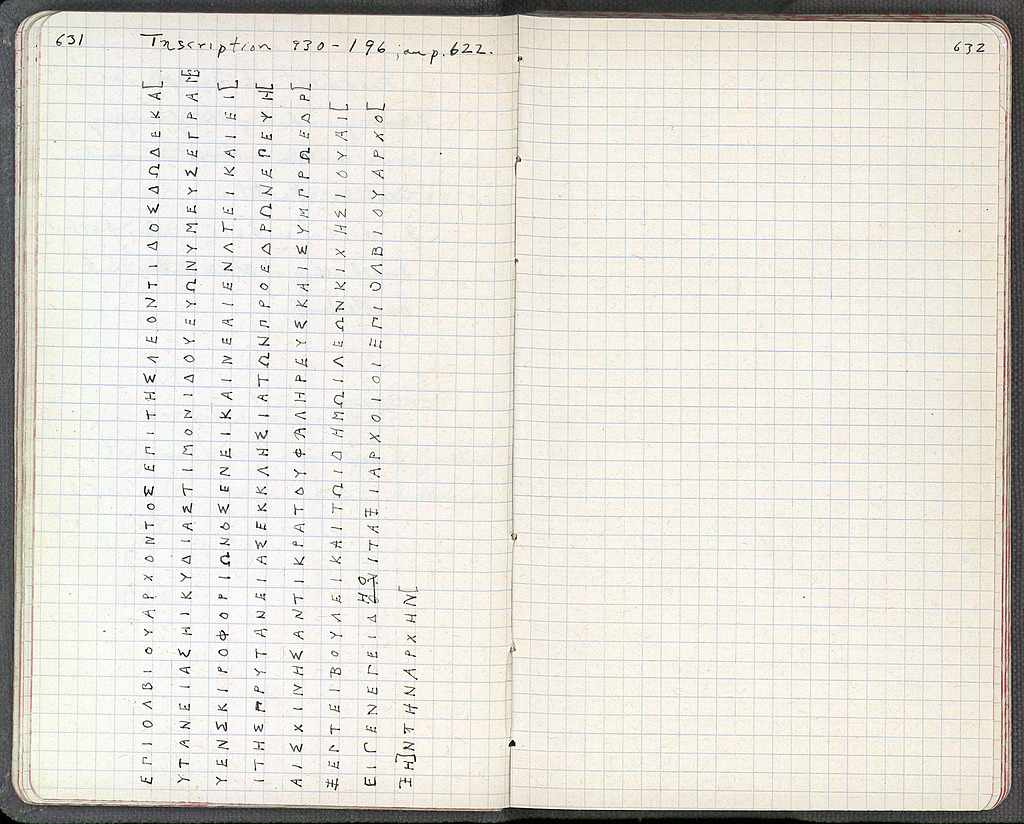 631
Inscription 930-196, see p. 622.
632
ΕΠΙΟΛΒΙΟΥΑΡΧΟΝΤΟΣΕΠΙΤΗΣΛΕΟΝΤΙΔΟΣΔΩΔΕΚΑ[
ΥΤΑΝΕΙΑΣΗΙΚΥΔΙΑΣΤΙΜΟΝΙΔΟΥΕΥΩΝΥΜΕΥΣΕΓΡΑΜ[
ΥΕΝΣΚΙΡΟΦΟΡΙΩΝΟΣΕΝΕΙΚΑΙΝΕΑΙΕΝΑΤΕΙΚΑΙΕΙ[
ΙΤΗΣΠΡΥΤΑΝΕΙΑΣΕΚΚΛΗΣΙΑΤΩΝΠΡΟΕΔΡΩΝΕΠΕΨΗ[
ΑΙΣΧΙΝΗΣΑΝΤΙΚΡΑΤΟΥΦΑΛΗΡΕΥΣΚΑΙΣΥΜΠΡΩΕΔΡ[
ΞΕΝΤΕΙΒΟΥΛΕΙΚΑΙΤΩΙΔΗΜΩΙΛΕΩΝΚΙΧΗΣΙΟΥΑΙ[
ΕΙΠΕΝΕΠΕΙΔΗΟΙΤΑΞΙΑΡΧΟΙΟΙΕΠΙΟΛΒΙΟΥΑΡΧΟ[
ΞΗ]ΝΤΗΝΑΡΧΗΝ[